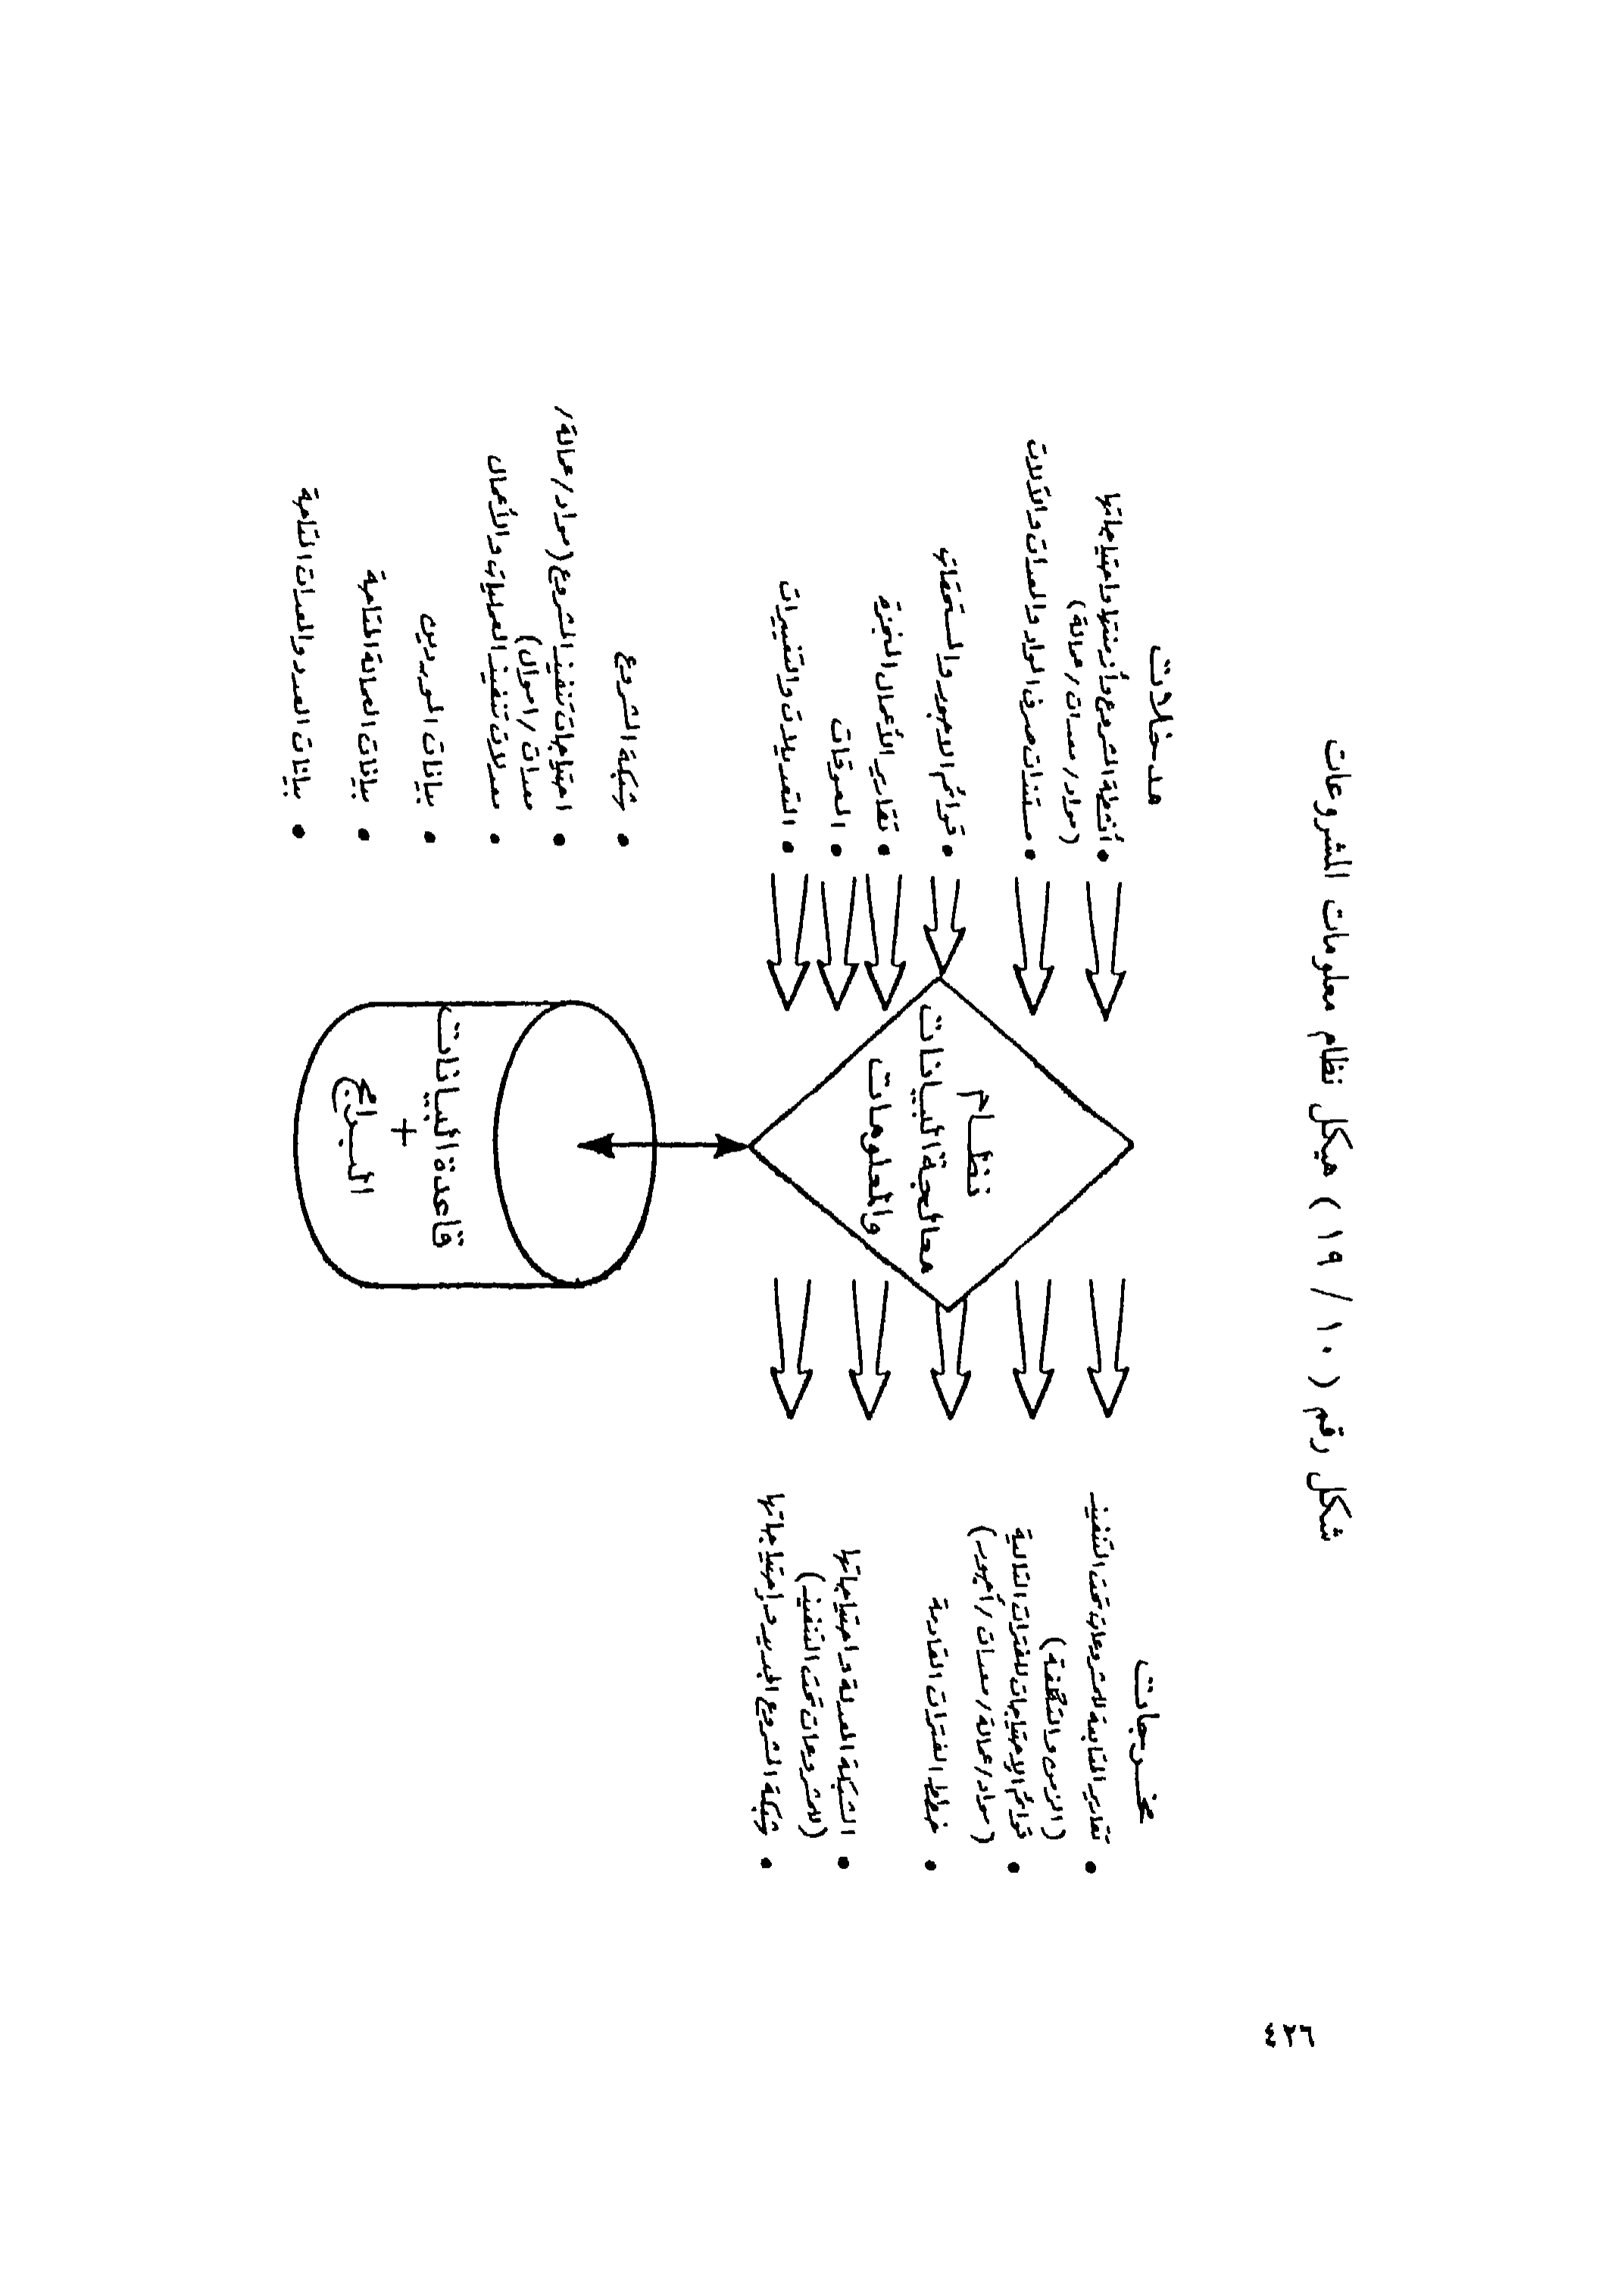 شكل رقم ( ١٩ / ١٠ ) هيكل نظام معلومات المشروعات
مدخلات
• أنشطة المشروع وأزمنتها واحتياجاتها
(مواد / معدات / عمالة)
• مستندات صرف المواد والمعدات والآلات
• قوائم الاجور والمستحقات
• تقارير الأعمال المنجزة
• المعوقات
• التعديلات والتغييرات
نظام
معالجة البيانات
والمعلومات
مخرجات
• تقارير المتابعة للمشروعات تحت التنفيذ
(الزمن والتكلفة)
• قوائم الاحتياجات للفترات التالية
(مواد / عمالة / معدات / أجور)
• خطط الفترات القادمة
• الشبكة المعدلة واحتياجاتها
(للمشروعات تحت التنفيذ)
• شبكة المشروع الجديد واحتياجاتها
• شبكة المشروع
• احتياجات تنفيذ المشروع (مواد / عمالة /
معدات / اموال)
• معدلات تنفيذ العمليات والأعمال
• بيانات الموردين
• بيانات العمالة المتاحة
• بيانات العدد والمعدات المتاحة
قاعدة البيانات
+
البرامج
٤٢٦